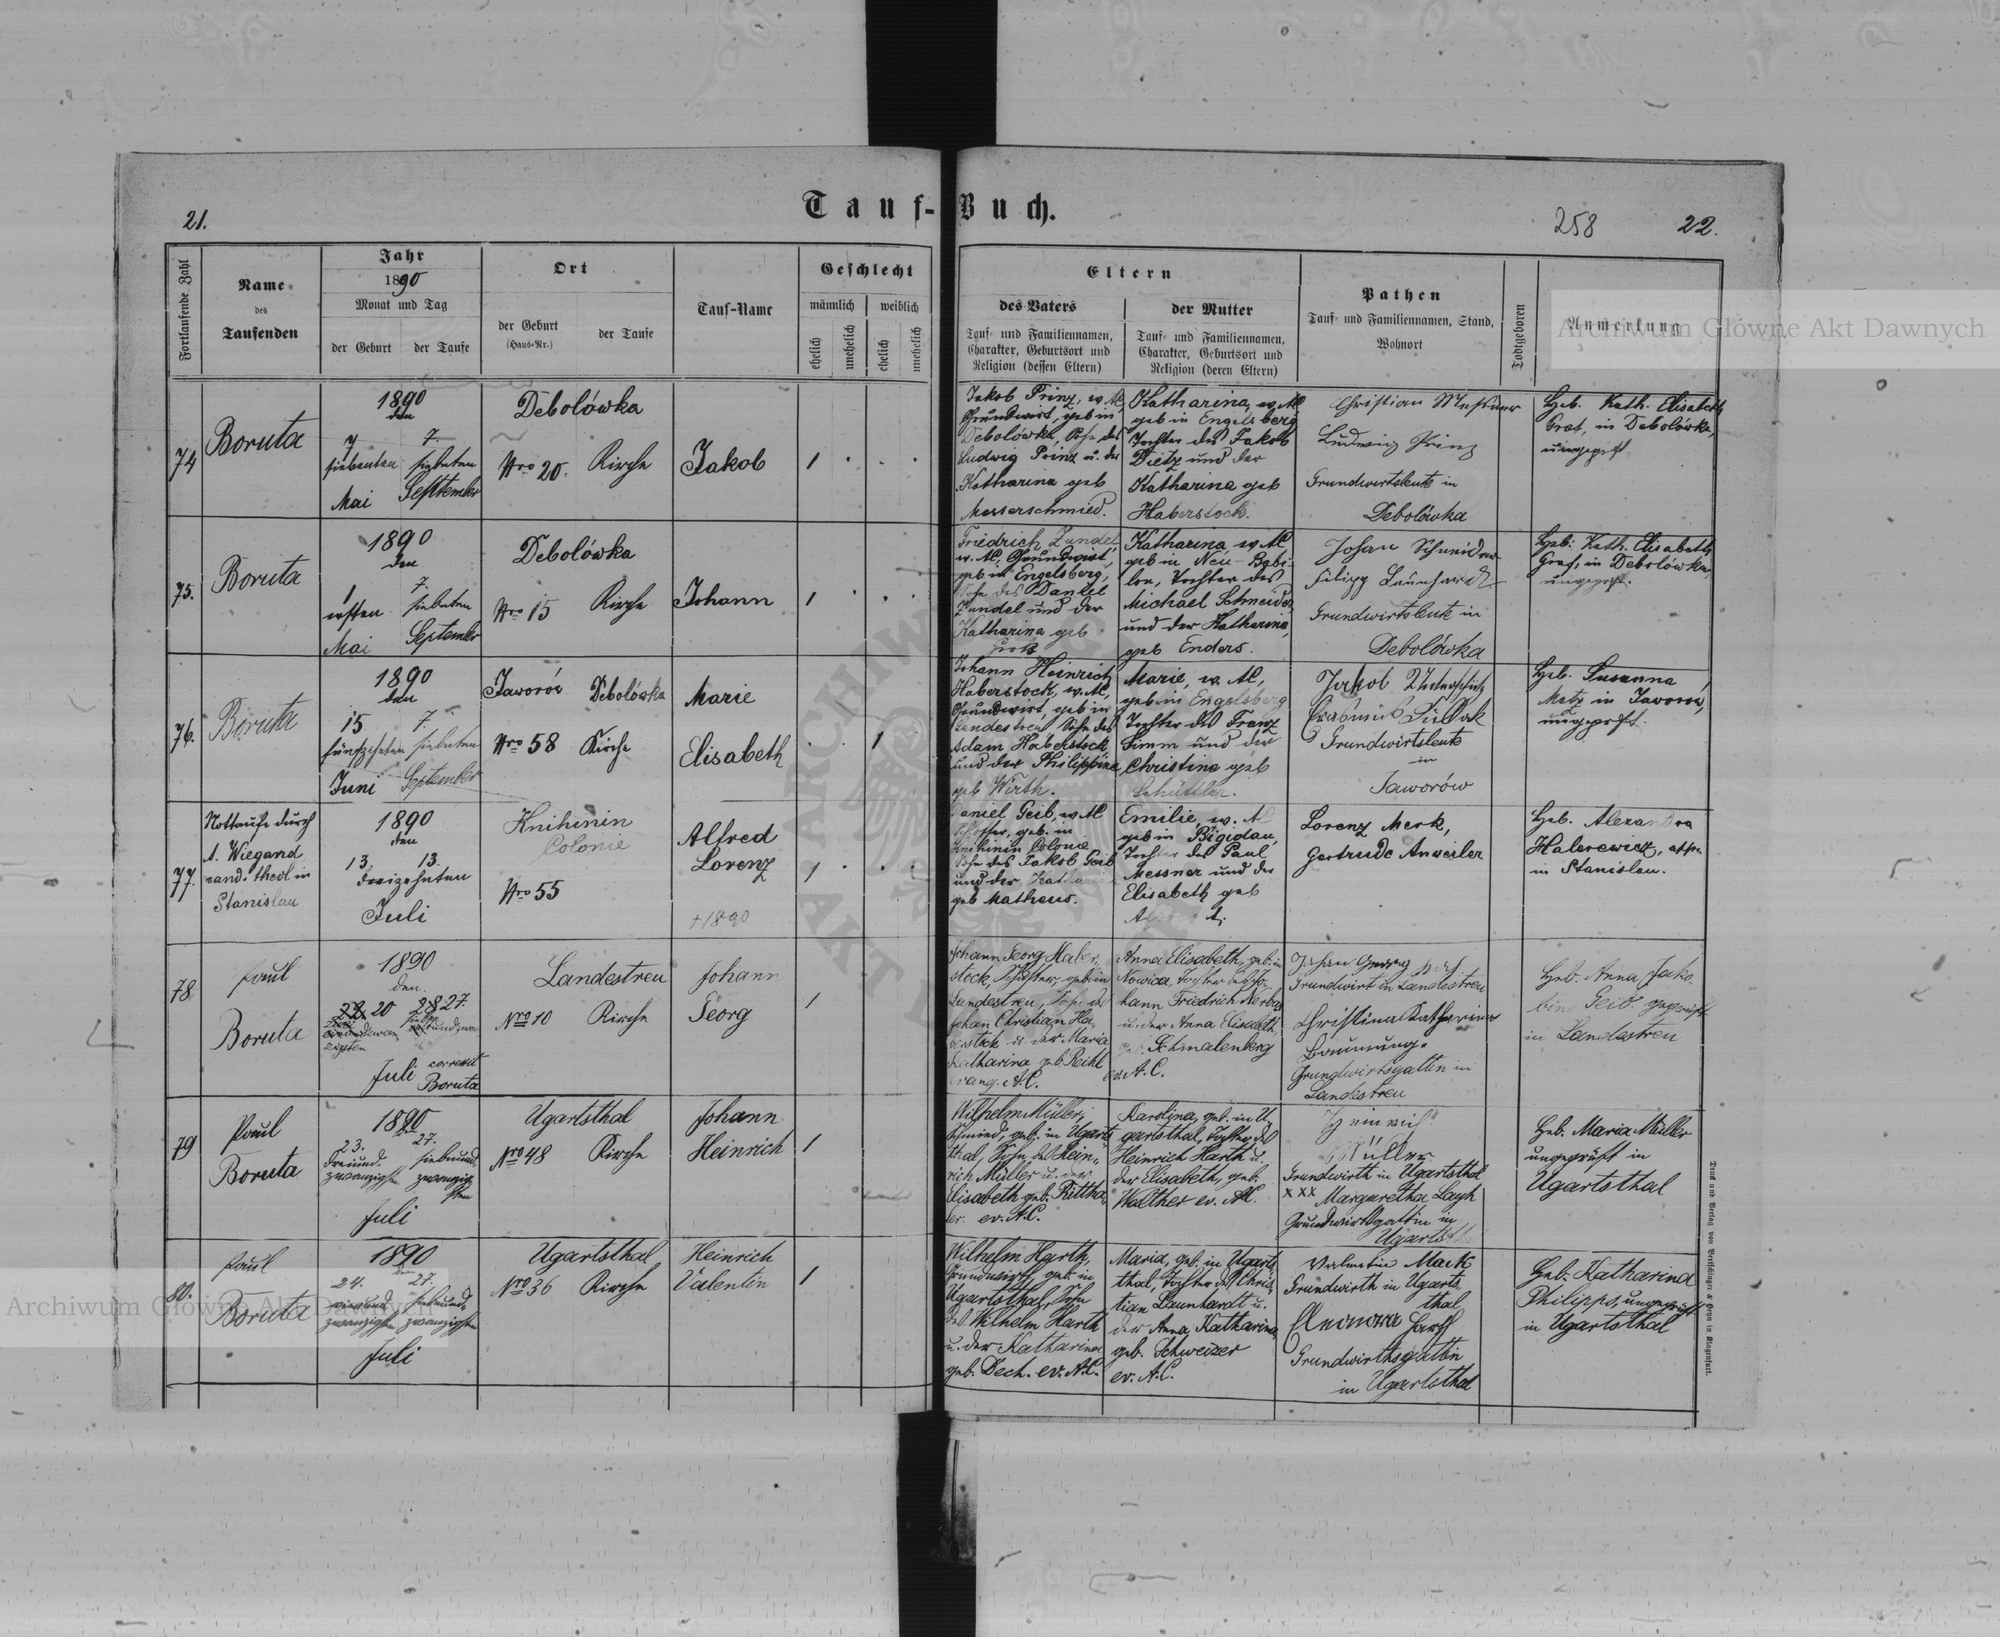 21.
Tauf-Buch.
258
22.
Fortlaufende Zahl
Name
des
Taufenden
Jahr
1890
Monat und Tag
der Geburt
der Taufe
Ort
der Geburt
(Haus-Nr.)
der Taufe
Tauf-Name
Geschlecht
männlich
weiblich
ehelich
unehelich
ehelich
unehelich
Eltern
des Vaters
Tauf- und Familiennamen,
Charakter, Geburtsort und
Religion (dessen Eltern)
der Mutter
Tauf- und Familiennamen,
Charakter, Geburtsort und
Religion (deren Eltern)
Pathen
Tauf- und Familiennamen, Stand,
Wohnort
Todtgeboren
Anmerkung
Archiwum Główne Akt Dawnych
74
Boruta
1890
den
7 7.
siebenten siebenten
Mai September
Debolówka
Nro 20. Kirche
Jakob
1
Jakob Prinz, ev. AC
Grundwirt, geb in
Debolówka, Sohn des
Ludwig Prinz u. der
Katharina geb
Messerschmied.
Katharina, ev. AC
geb in Engelsberg
Tochter des Jakob
Dietz und der
Katharina geb
Haberstock.
Christian Messner
Ludwig Prinz
Grundwirtsleute in
Debolówka
Heb. Kath. Elisabeth
Graf, in Debolówka,
ungeprft.
75.
Boruta
1890
den
1 7.
ersten siebenten
Mai September
Debolówka
Nro 15 Kirche
Johann
1
Friedrich Zundel
ev. AC, Grundwirt,
geb in Engelsberg,
Sohn des Daniel
Zundel und der
Katharina geb
Katharina, ev. AC
geb in Neu-Babi-
lon, Tochter des
Michael Schneider,
und der Katharina,
geb Enders.
Johan Schneider
Filipp Launhardt
Grundwirtsleute in
Debolówka
Heb: Kath. Elisabeth
Graf, in Debolówka,
ungeprft.
76.
Boruta
1890
den
15 7.
fünfzehnten siebenten
Juni September
Jaworów Debolówka
Nro 58 Kirche
Marie
Elisabeth
1
Johann Heinrich
Haberstock, ev. AC,
Grundwirt, geb in
Landestreu Sohn des
Adam Haberstock
und der Philippina
geb Wirth.
Marie, ev. AC,
geb in Engelsberg
Tochter des Franz
Simm und der
Christine geb
Schüttler.
Jakob
Grundwirtsleute
in
Jaworów
Heb. Susanna
Metz in Jaworów,
ungeprft.
77.
Nottaufe durch
A. Wiegand
cand. theol in
Stanislau
1890
den
13. 13.
dreizehnten
Juli
Knihinin
Colonie
Nro 55
Alfred
Lorenz
+1890
1
Daniel Geib, ev AC
geb. in
Knihinin Colonie
Sohn des Jakob Geib
und der Katharina
geb Matheus.
Emilie, ev. AC
geb in Bigidau,
Tochter des Paul
Messner und der
Elisabeth geb
Lorenz Merk,
Gertrude Anweiler
Heb. Alexandra
Halerewicz,
in Stanislau.
78
Paul
Boruta
1890
den
22. 20 28 27.
Juli correxit
Boruta
Landestreu
Nro 10 Kirche
Johann
Georg
1
Johann Georg Haber-
stock, geb. in
Landestreu, Sohn des
Johan Christian Ha-
berstock u. der Maria
Katharina geb. Reichl
evang. A.C.
Anna Elisabeth, geb. in
Nowica, Tochter des Jo-
hann Friedrich
u. der Anna Elisabeth
geb. Schmalenberg
ev. A.C.
Johan Georg
Grundwirt in Landestreu
Christina Katharina
Grundwirtsgattin in
Landestreu
Heb. Anna Jako-
bina Geib geprüft
in Landestreu
79
Paul
Boruta
1890
den
23. 27.
dreiund- siebenund-
zwanzigsten zwanzig-
sten
Juli
Ugartsthal
Nro 48 Kirche
Johann
Heinrich
1
Wilhelm Müller,
Schmied, geb. in Ugarts-
thal, Sohn des Hein-
rich Müller u. der
Elisabeth geb. Rittha-
ler ev. A.C.
Karolina, geb. in U-
gartsthal, Tochter des
Heinrich Harth u.
der Elisabeth, geb.
Walther ev. AC.
Heinrich
Müller
Grundwirth in Ugartsthal
xxx Margaretha Layh
Grundwirtsgattin in
Ugartsthal
Heb. Maria Müller
ungeprüft in
Ugartsthal
80.
Paul
Boruta
1890
den
24. 27.
vierund- siebenund-
zwanzigsten zwanzigsten
Juli
Ugartsthal
Nro 36 Kirche
Heinrich
Valentin
1
Wilhelm Harth,
Grundwirt, geb. in
Ugartsthal, Sohn
des Wilhelm Harth
u. der Katharina
geb. Dech. ev. AC.
Maria, geb. in Ugarts-
thal, Tochter des Chris-
tian Launhardt u.
der Anna Katharina
geb. Schweizer
ev. A.C.
Valentin Mack
Grundwirth in Ugarts-
thal
Eleonora Harth
Grundwirthsgattin
in Ugartsthal
Heb. Katharina
Philipps, ungeprüft
in Ugartsthal
Archiwum Główne Akt Dawnych